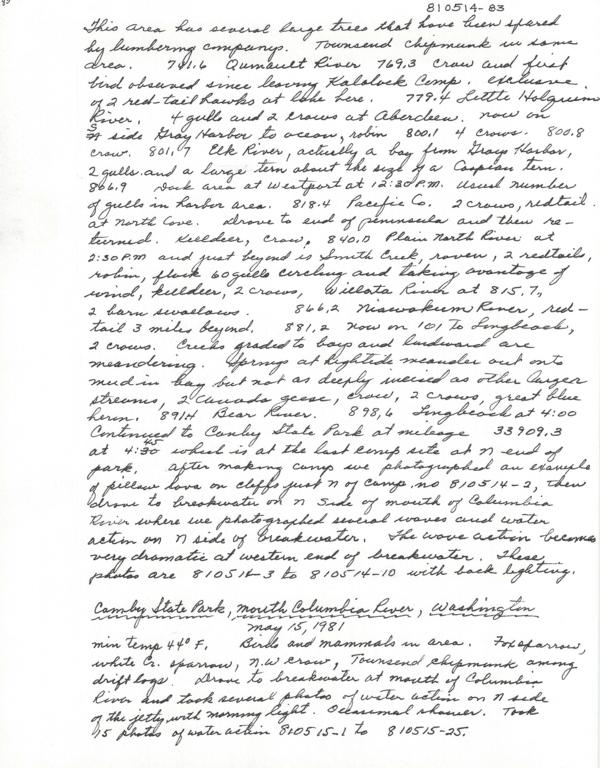 83
810514-83
This area has several large trees that have been spared
by lumbering companys. Townsend chipmunk in same
area. 741.6 Quinault River 769.3 crow and first
bird observed since leaving Kalalock Camp. exclusive
of 2 red-tail hawks at lake here. 779.4 Little Hoquiam
River, 4 gulls and 2 crows at Aberdeen. now on
S side Gray Harbor to ocean, robin 800.1 4 crows. 800.8
crow. 801.7 Elk River, actually a bay from Grays Harbor,
2 gulls and a large tern about the size of a Caspian tern.
806.9 Dock area at Westport at 12:30 P.M. Usual number
of gulls in harbor area. 818.4 Pacific Co. 2 crows, redtail
at North Cove. Drove to end of peninsula and then re-
turned. Killdeer, crow, 840.0 Plain North River at
2:30 P.M and just beyond is Smith Creek, raven, 2 redtails,
robin, flock 60 gulls circling and taking avantage of
wind, killdeer, 2 crows, Willata River at 815.7,
2 barn swallows. 866.2 Niawokum River, red-
tail 3 miles beyond. 881.2 now on 101 to Longbeach,
2 crows. Creeks graded to bays and landward are
meandering. Springs at hightide meander out onto
mud in bay but not as deeply incised as other larger
streams, 2 Canada geese, crow, 2 crows, great blue
heron. 891.4 Bear River. 898.6 Longbeach at 4:00
Continued to Canby State Park at mileage 33909.3
at 4:45 which is at the last camp site at N end of
park. After making camp we photographed an example
of pillow lava on cliffs just N of camp. no 810514-2, then
drove to breakwater on N side of mouth of Columbia
River where we photographed several waves and water
action on N side of breakwater. The wave action becomes
very dramatic at western end of breakwater. These
photos are 810514-3 to 810514-10 with back lighting.
Canby State Park, mouth Columbia River, Washington
May 15, 1981
min temp 44° F. Birds and mammals in area. Fox sparrow,
white Cr. sparrow, N.W crow, Townsend chipmunk among
drift logs. Drove to breakwater at mouth of Columbia
River and took several photos of water action on N side
of the jetty with morning light. Occasional shower. Took
15 photos of water action 810515-1 to 810515-25.